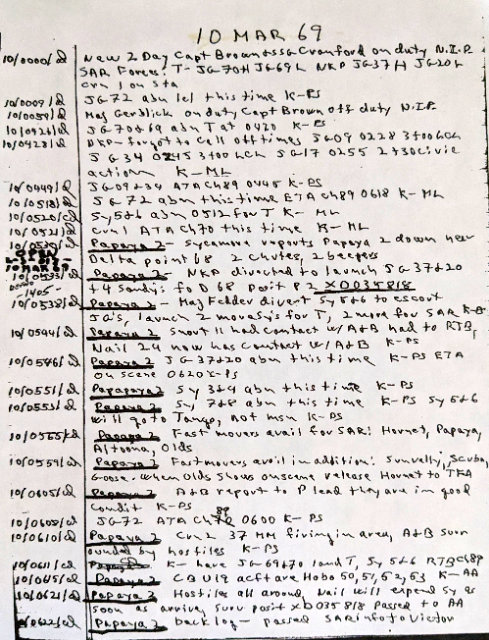 10 MAR 69
10/0000/d New 2 Day Capt Brown & SSG Cranford on duty N.I.P.
SAR Forces: T- JG 70H JG 69L NKP JG 37H JG 20L
Crn 1 on sta
10/0009/d JG 72 abn lcl this time K-PS
10/0059/d Maj Gerdlich on duty Capt Brown off duty N.I.P.
10/0426/d JG 70 & 69 abn T at 0420 K-PS
10/0428/d NKP - forgot to call off times JG 09 0228
JG 34 0245 JG 17 0255
action K-ML
10/0449/d JG 09 & 34 ATA Ch89 0445 K-PS
10/0518/d JG 72 abn this time ETA Ch89 0618 K-ML
10/0520/d Sy 5 & 6 abn 0512 for T K-ML
10/0521/d Crn 1 ATA Ch70 this time K-ML
Papaya 2 - Sycamore reports Papaya 2 down near
OPEN Delta point 68 2 chutes, 2 beepers
10 MAR 69
10/0533/d Papaya 2 - NKP directed to launch JG 37 & 20
-1405- + 4 Sandys to D 68 posit P2 XD035818
10/0538/d Papaya 2 - Maj Felder divert Sy 5 & 6 to escort
JG's, launch 2 more Sy's for T, 2 more for SAR K-
10/0544/d Papaya 2 Snout 11 had contact w/ A&B had to RTB,
Nail 24 now has contact w/ A&B K-PS
10/0546/d Papaya 2 JG 37 & 20 abn this time K-PS ETA
on scene 0620 K-PS
10/0551/d Papapaya 2 Sy 3 & 4 abn this time K-PS
10/0553/d Papaya 2 Sy 7 & 8 abn this time K-PS Sy 5 & 6
will go to Tango, not msn K-PS
10/0555/d Papapa 2 Fast movers avail for SAR: Hornet, Papaya,
Altoona, Olds
10/0559/d Papaya 2 Fast movers avail in addition: Sunvally, Scuba,
Goose. When Olds shows on scene release Hornet to TFA
10/0605/d Papaya 2 A&B report to P lead they are in good
condit K-PS
10/0608/d JG 72 ATA Ch 89 0600 K-PS
10/0610/d Papaya 2 Crn 2 37 MM firing in area, A&B surr
ounded by hostiles K-PS
10/0611/d Papaya 2 K- have JG 69 & 70 land T, Sy 5 & 6 RTB Ch89
10/0615/d Papaya 2 CBU19 acft are Hobo 50, 51, 52, 53 K-AA
10/0621/d Papaya 2 Hostiles all around, Nail will expend Sy as
soon as arrive, surv posit XD035818 passed to AA
10/0622/d Papaya 2 backlog - passed SAR info to Victor